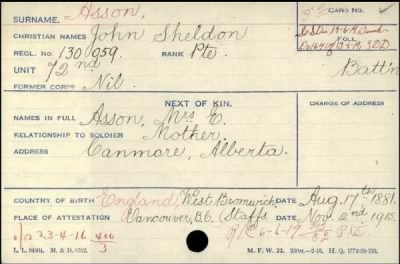 SURNAME, Asson, CARDS No.
CHRISTIAN NAMES John Sheldon
REGL. No. 130059 RANK Pte. FOLL.
UNIT 72nd Batt'n
FORMER CORPS Nil
NEXT OF KIN. CHANGE OF ADDRESS
NAMES IN FULL Asson, Mrs. E.
RELATIONSHIP TO SOLDIER Mother.
ADDRESS Canmore, Alberta.
COUNTRY OF BIRTH England, West Bromwich, DATE Aug. 17th 1881.
PLACE OF ATTESTATION Vancouver, B.C. (Staffs DATE Nov. 2nd 1915.
23-4-16 400 6-6-19 Pte
L. L. 94501. M. & D. 6582. M. F. W. 22. H. Q. 1772-39-339.